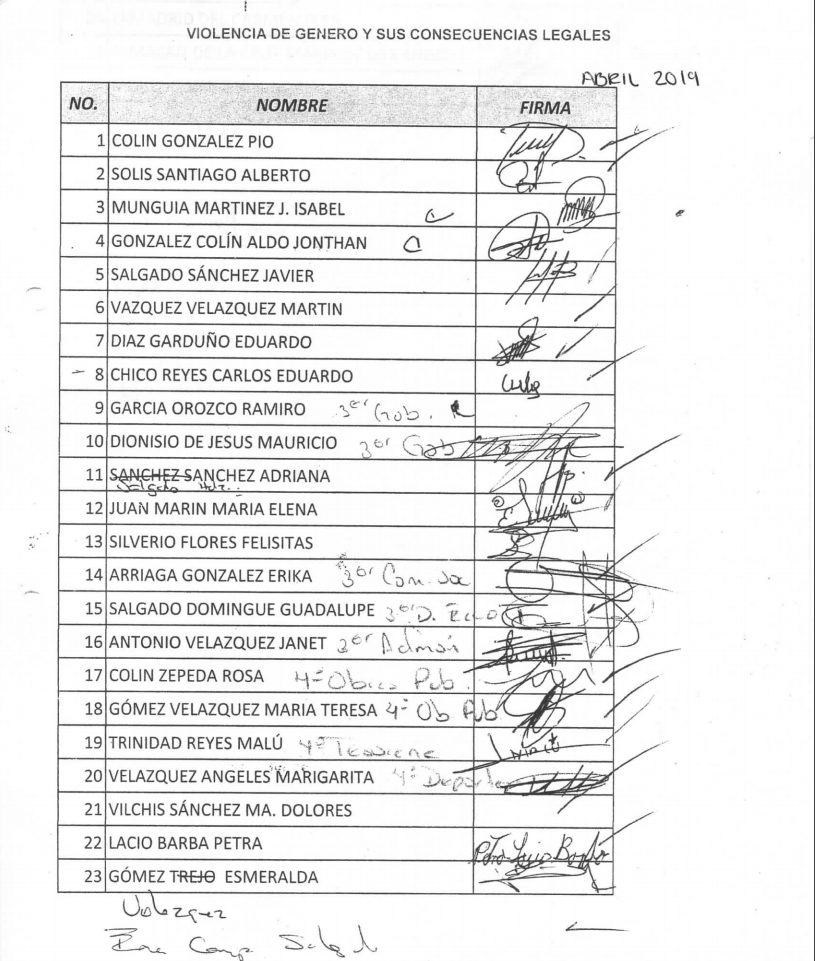 VIOLENCIA DE GENERO Y SUS CONSECUENCIAS LEGALES
ABRIL 2019
NO. NOMBRE FIRMA
1 COLIN GONZALEZ PIO
2 SOLIS SANTIAGO ALBERTO
3 MUNGUIA MARTINEZ J. ISABEL
4 GONZALEZ COLÍN ALDO JONTHAN
5 SALGADO SÁNCHEZ JAVIER
6 VAZQUEZ VELAZQUEZ MARTIN
7 DIAZ GARDUÑO EDUARDO
8 CHICO REYES CARLOS EDUARDO
9 GARCIA OROZCO RAMIRO 3er Gob.
10 DIONISIO DE JESUS MAURICIO 3er Gob
11 SANCHEZ SANCHEZ ADRIANA
Salgado
12 JUAN MARIN MARIA ELENA
13 SILVERIO FLORES FELISITAS
14 ARRIAGA GONZALEZ ERIKA 3er Com. Soc
15 SALGADO DOMINGUE GUADALUPE 3er D.
16 ANTONIO VELAZQUEZ JANET 3er Admón
17 COLIN ZEPEDA ROSA 4º Obras Pub.
18 GÓMEZ VELAZQUEZ MARIA TERESA 4º Ob Pub
19 TRINIDAD REYES MALÚ 4º
20 VELAZQUEZ ANGELES MARIGARITA 4º Deporte
21 VILCHIS SÁNCHEZ MA. DOLORES
22 LACIO BARBA PETRA
23 GÓMEZ TREJO ESMERALDA
Velazquez